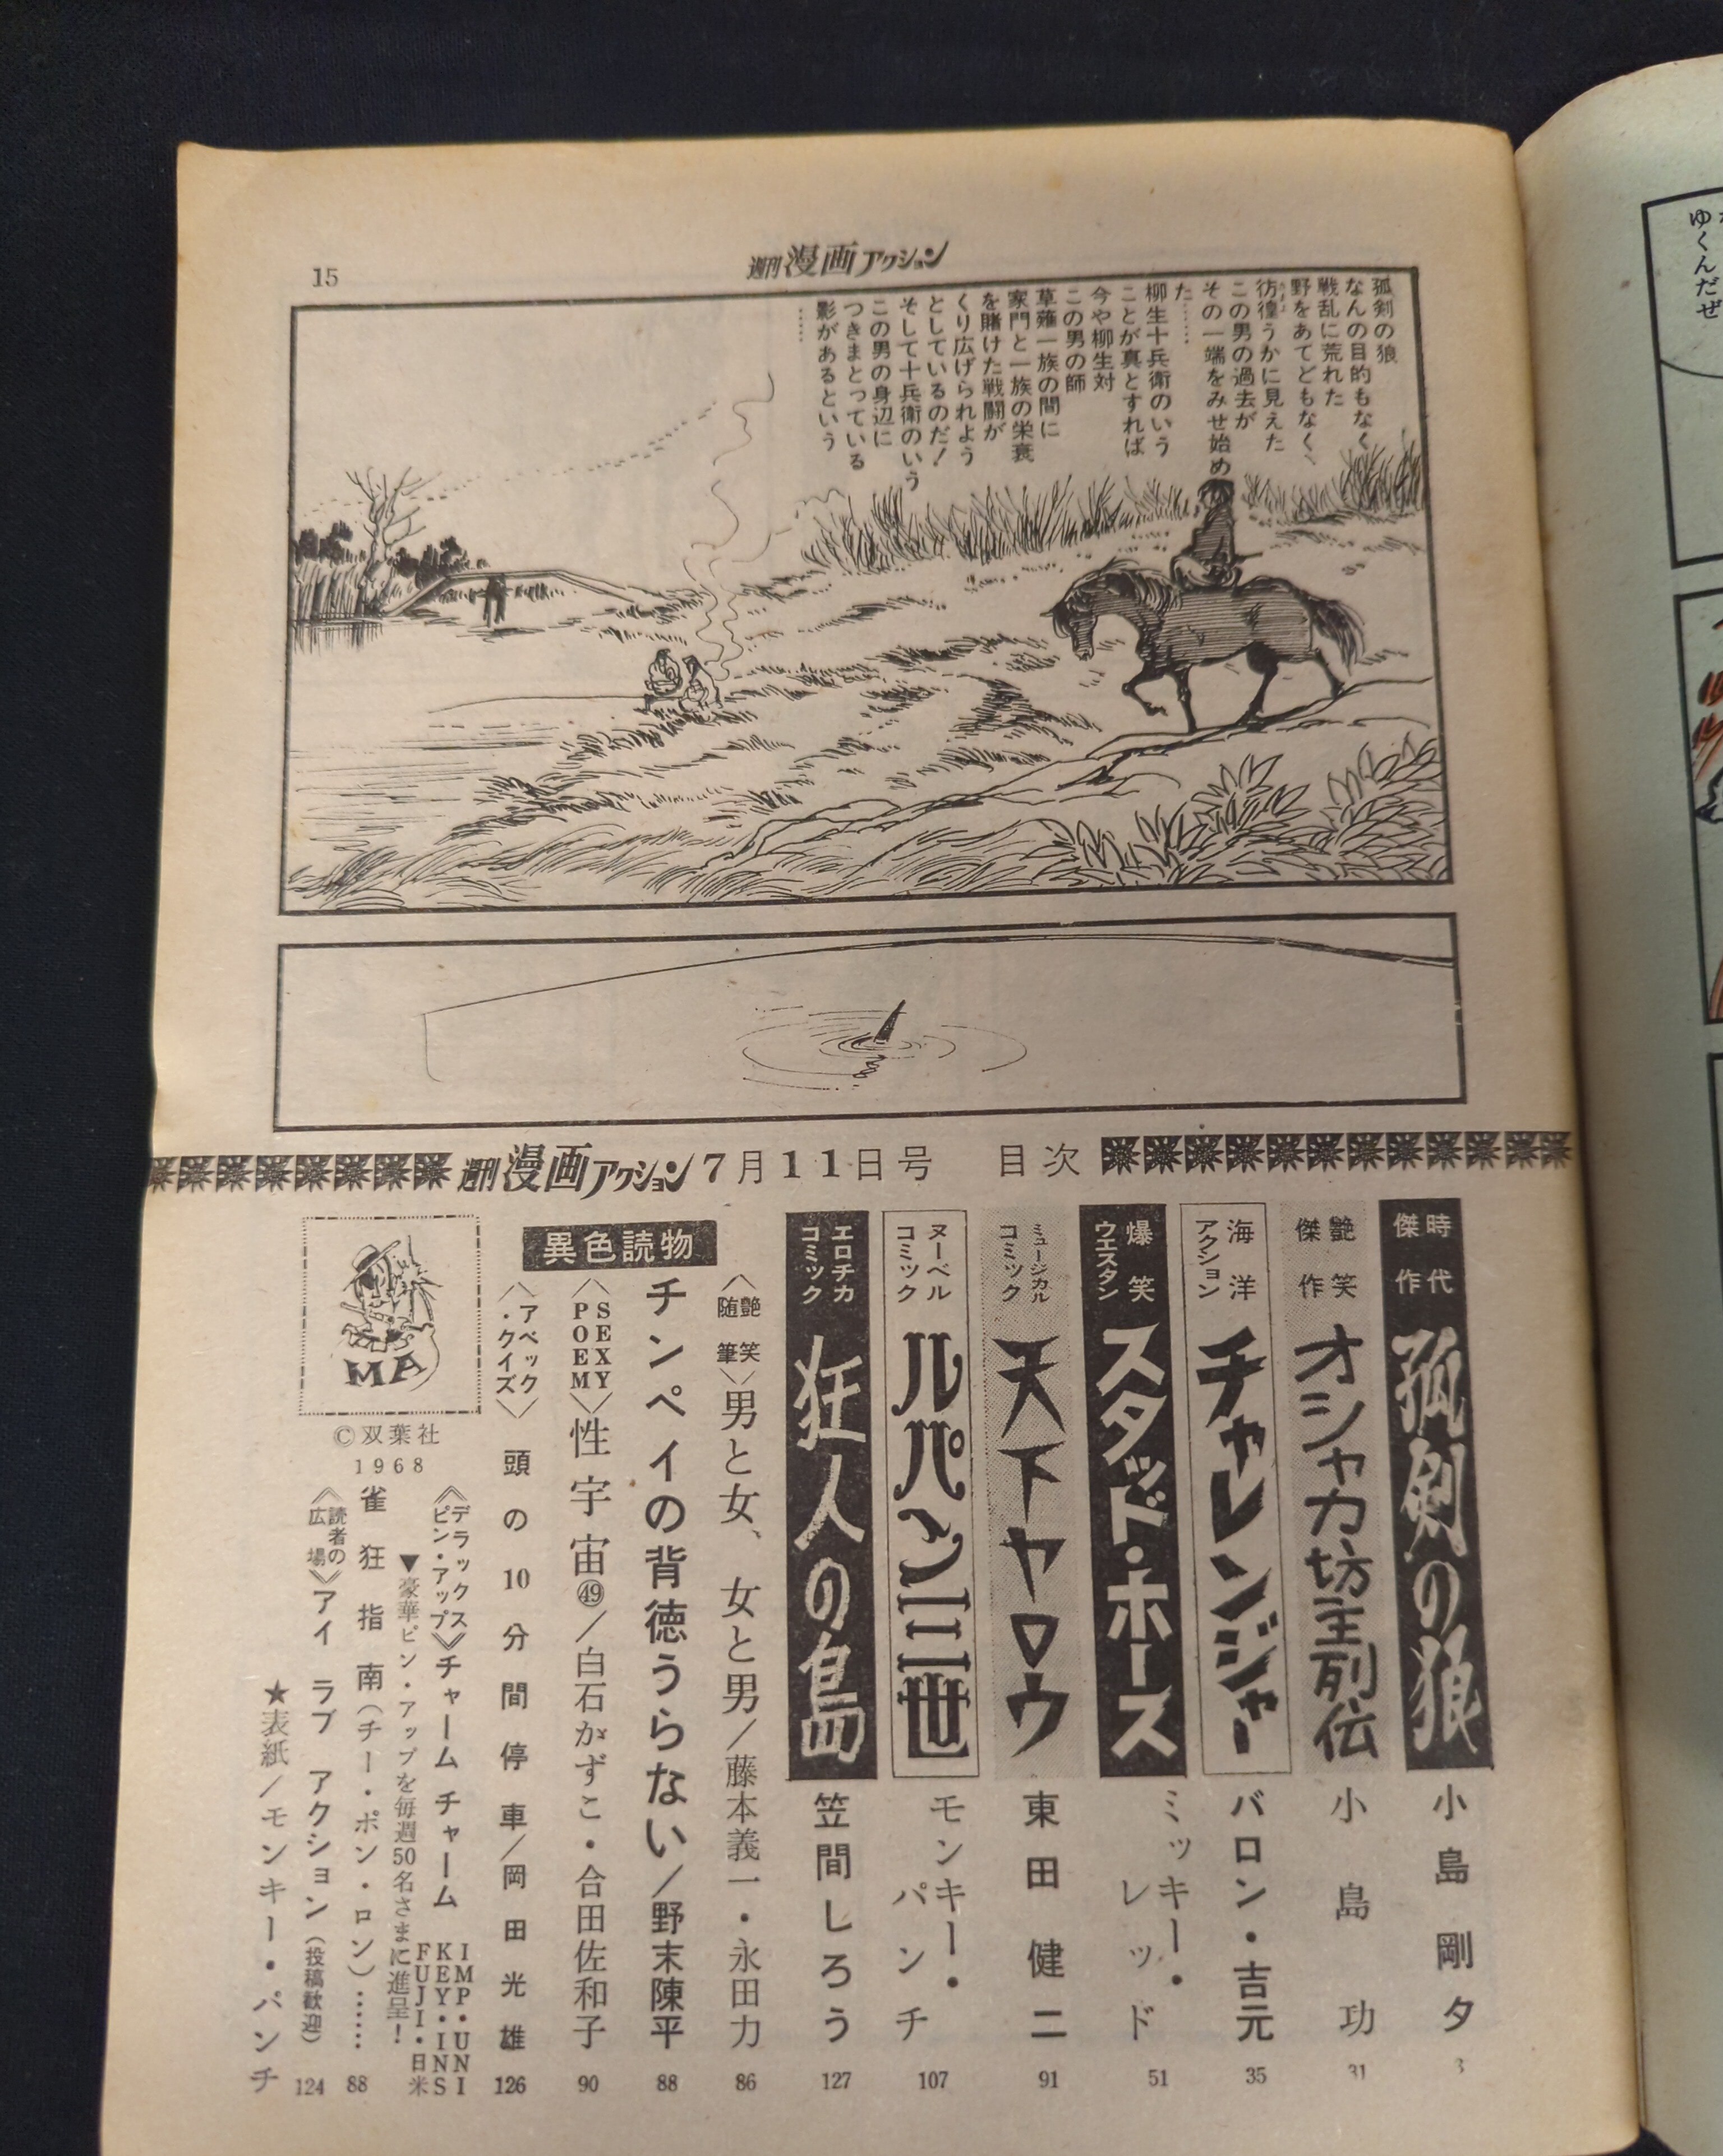 15
週刊漫画アクション
孤剣の狼
なんの目的もなく
戦乱に荒れた
野をあてどもなく、
彷徨うかに見えた
この男の過去が
その一端をみせ始め
た……
柳生十兵衛のいう
ことが真とすれば
今や柳生対
この男の師
草薙一族の間に
家門と一族の栄衰
を賭けた戦闘が
くり広げられよう
としているのだ!
そして十兵衛のいう
この男の身辺に
つきまとっている
影があるという
……
ゆくんだぜ
週刊漫画アクション7月11日号 目次
時代傑作 孤剣の狼 小島剛夕 3
艶笑傑作 オシャカ坊主列伝 小島功 31
海洋アクション チャレンジャー バロン・吉元 35
爆笑ウエスタン スタッド・ホース ミッキー・レッド 51
ミュージカルコミック 天下ヤロウ 東田健二 91
ヌーベルコミック ルパン三世 モンキー・パンチ 107
エロチカコミック 狂人の島 笠間しろう 127
異色読物
〈艶笑随筆〉男と女、女と男/藤本義一・永田力 86
チンペイの背徳うらない/野末陳平 88
〈SEXY POEM〉性宇宙㊾/白石かずこ・合田佐和子 90
〈アベック・クイズ〉頭の10分間停車/岡田光雄 126
MA
©双葉社
1968
《デラックスピン・アップ》チャーム チャーム IMP・UNI KEY・INS FUJI・日米
▼豪華ピン・アップを毎週50名さまに進呈!
雀狂指南(チー・ポン・ロン)…… 88
《読者の広場》アイ ラブ アクション(投稿歓迎) 124
★表紙/モンキー・パンチ